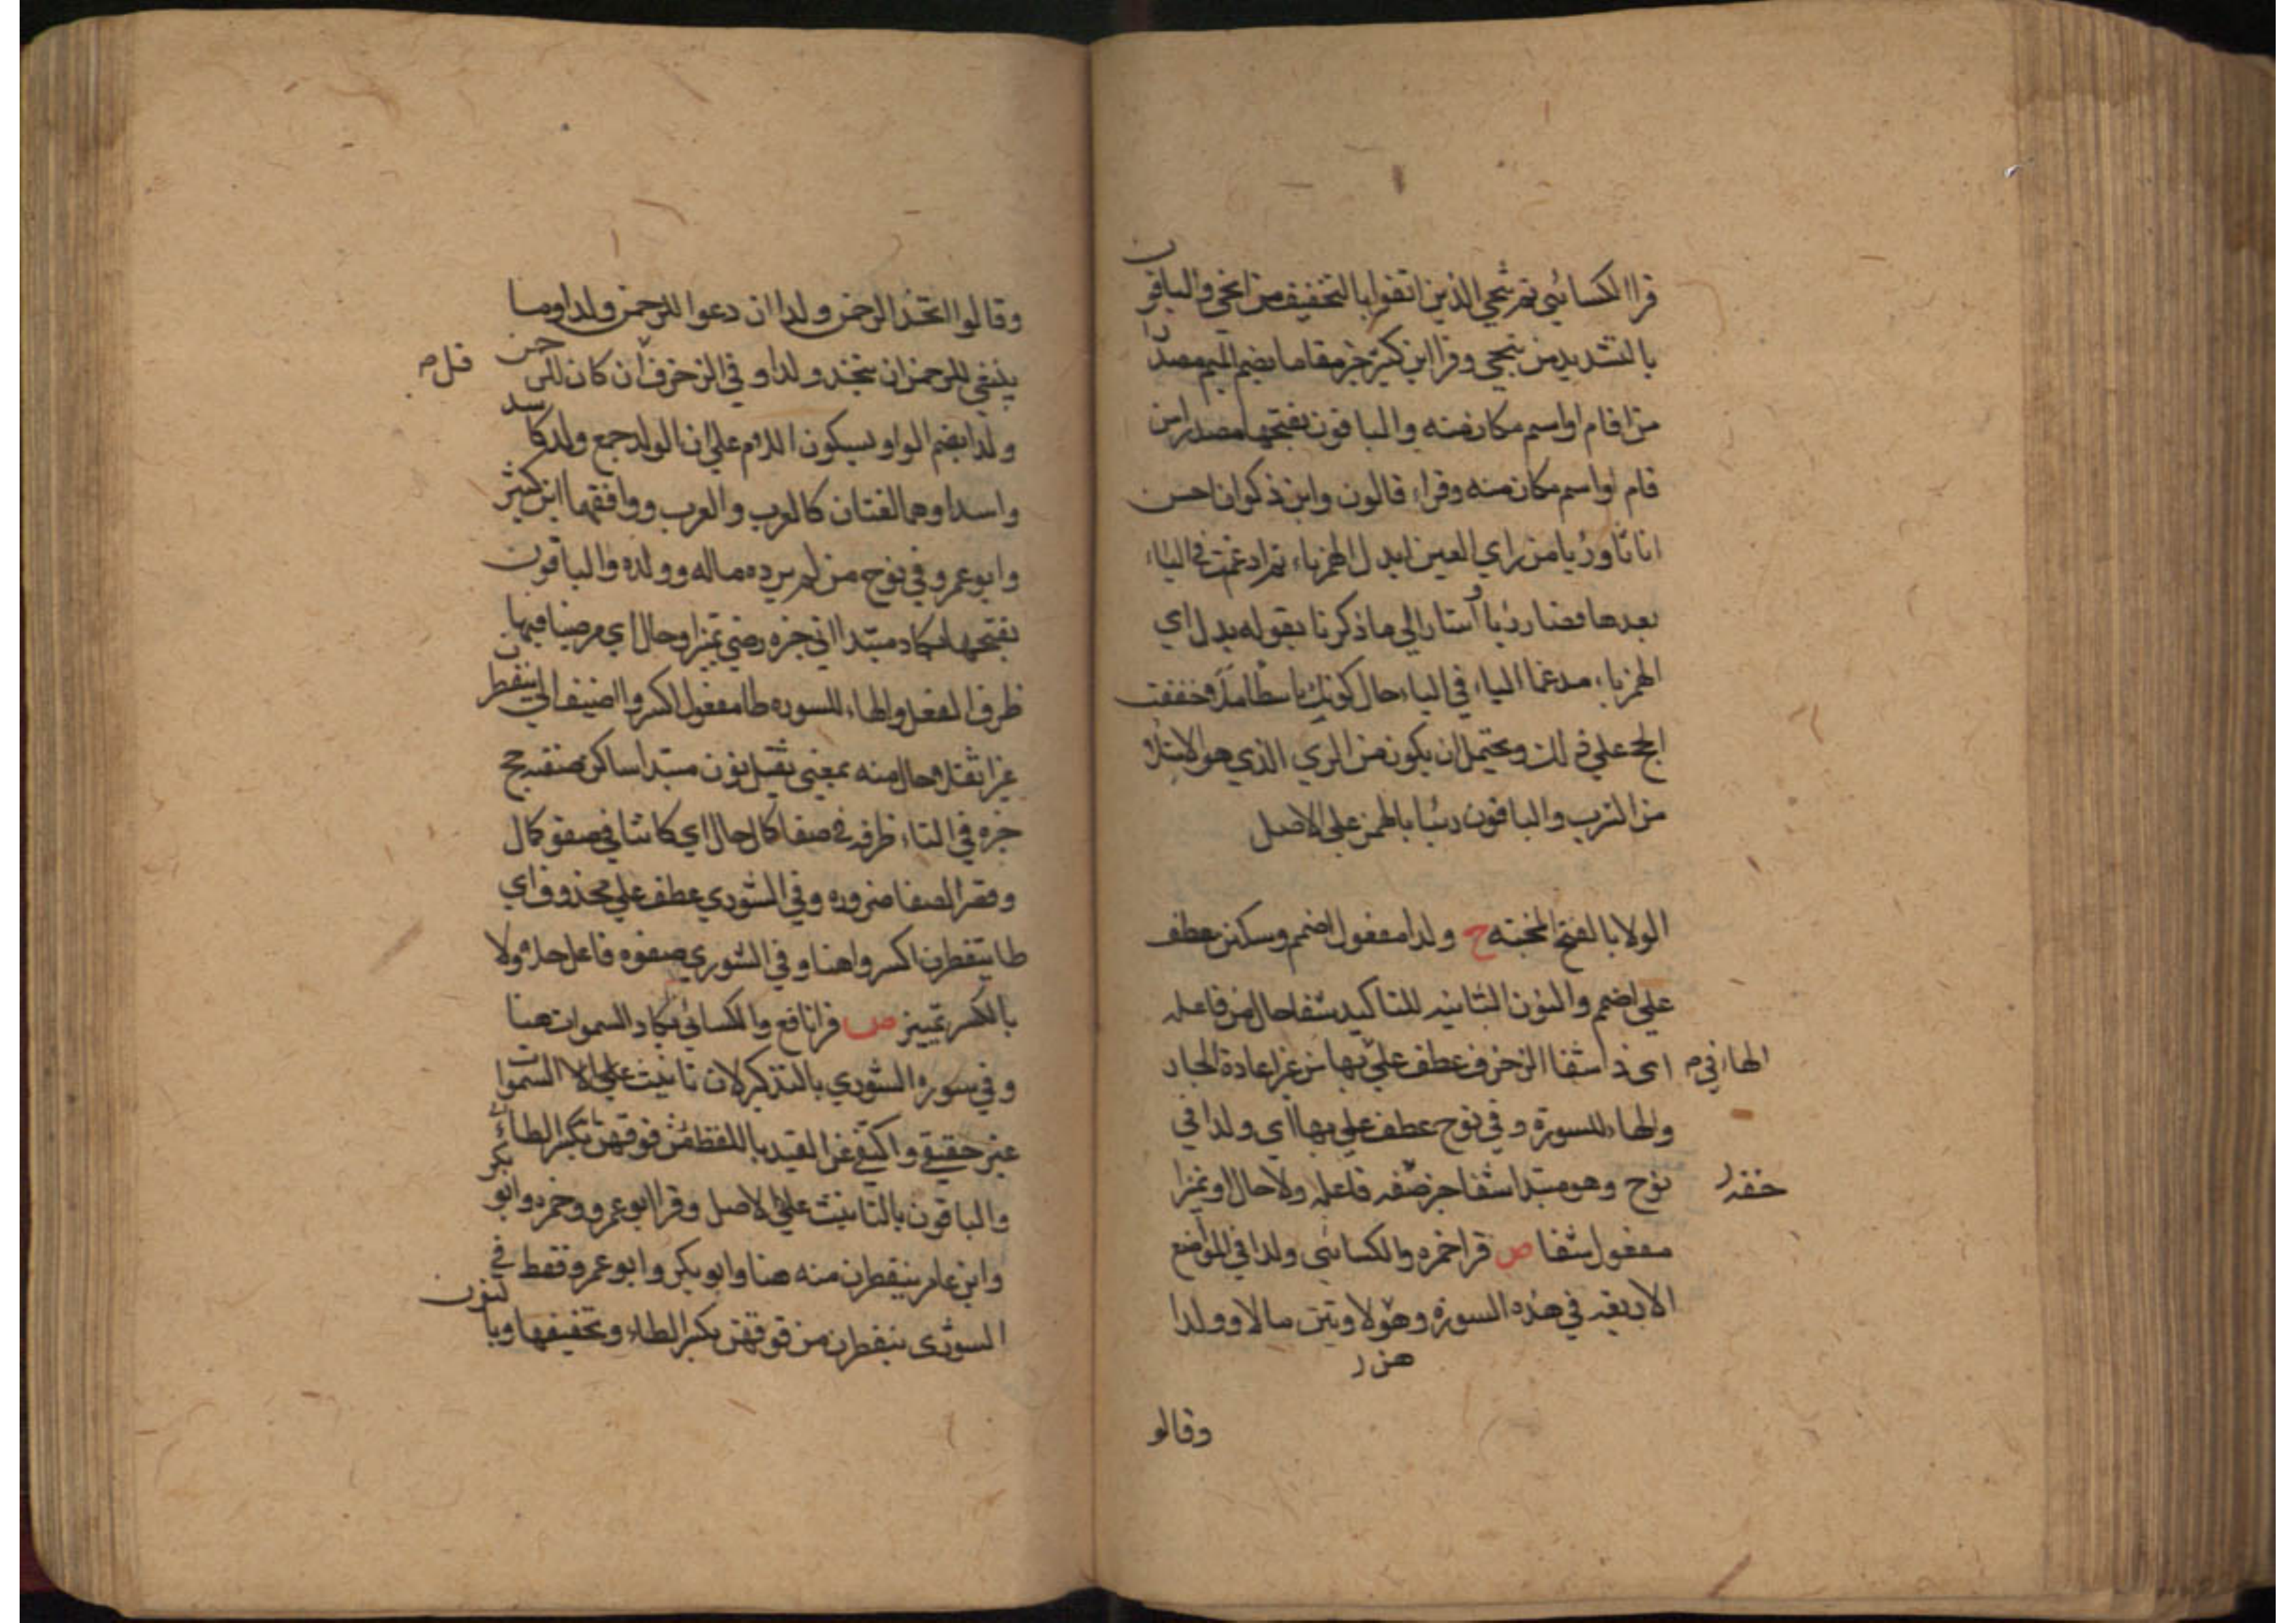 قرا الكسائي ثم ننجي الذين اتقوا بالتخفيف من انجي والباقون
بالتشديد من ينجي وقرا ابن كثير خير مقاما بضم الميم مصدرا
من اقام او اسم مكان منه والباقون بفتحها مصدرا من
قام او اسم مكان منه وقراء قالون وابن ذكوان احسن
اثاثا وريا من راي العين ابدل الهمز ياء ثم ادغمت في الياء
بعدها فصار ريا اشار الي ما ذكرنا بقوله بدل اي
الهمز ياء مدغما الياء في الياء حال كونك باسطا ملا وخففت
الحج علي ذلك ويحتمل ان يكون من الري الذي هو الامتلا
من الشرب والباقون رئيا بالهمز علي الاصل
الولا بالفتح المحبته ح ولدا مفعول اضمم وسكنن عطف
علي اضمم والنون الثانيه للتاكيد شفا حال من فاعله
اي ذا شفا الزخرف عطف علي بها من غير اعادة الجار
الهاء في م
والهاء للسورة وفي نوح عطف علي بها اي ولدا في
نوح وهو مبتدا شفا خبر صفه فاعله ولا حال او تميزا
حقه ر
مفعول شفا ص قرا حمزه والكسائي ولدا في المواضع
الاربعه في هذه السورة وهو لاوتين مالا وولدا
هن ر
وقالو
وقالوا اتخذ الرحمن ولدا ان دعوا للرحمن ولدا وما
ينبغي للرحمن ان يتخذ ولدا وفي الزخرف ان كان للرحمن
قل م
ولدا بضم الواو وسكون اللام علي ان الولد جمع ولد كاسد
واسد او هما لغتان كالعرب والعرب ووافقهما ابن كثير
وابو عمرو في نوح من لم يزده ماله وولده والباقون
بفتحها يكاد مبتدا اتي خبره رضي تميز او حال اي مرضيا فيها
ظرف الفعل والهاء للسوره طا مفعول اكسروا اضيف الي ينفطرن
غير اثقلا حال منه بمعني ثقيل نون مبتدا ساكن صفته حج
خبره في التاء ظرفه في صفا كال حال اي كائنا في صفو كال
وقصر الصفا ضروره وفي الشوري عطف علي محذوف اي
طا يتفطرن اكسروا هنا وفي الشوري صفوه فاعل حلا ولا
بالكسر تمييز ص قرا نافع والكسائي يكاد السموات هنا
وفي سورة الشوري بالتذكير لان تانيث السموات
غير حقيقي واكتفي عن القيد باللفظ من فوقهن بكسر الطاء
والباقون بالتانيث علي الاصل وقرا ابو عمرو وحمزه وابو بكر
وابن عامر ينفطرن منه هنا وابو بكر وابو عمرو فقط في
الشوري ينفطرن من فوقهن بكسر الطاء وتخفيفها وبا لنون